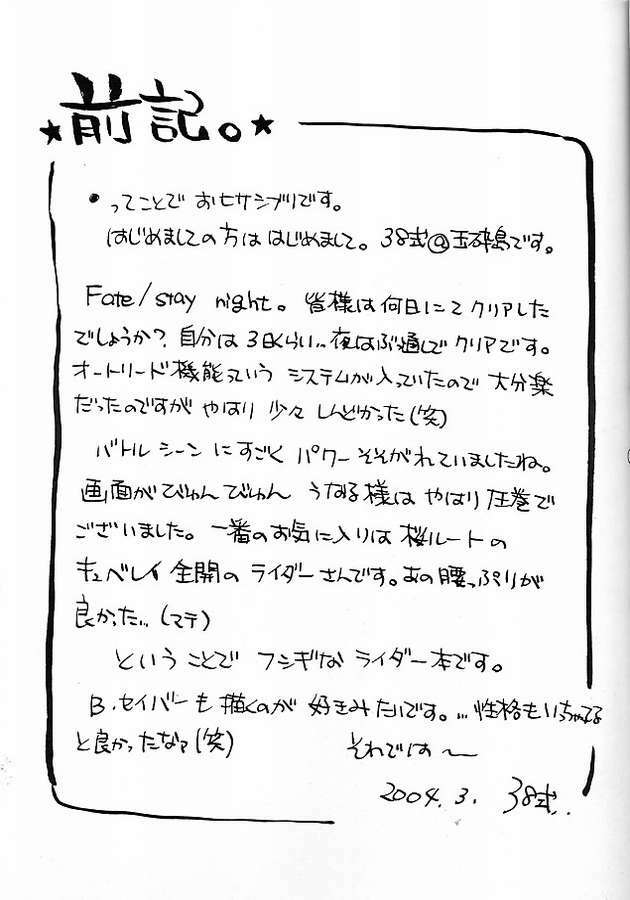 ★前記。★
・ってことで おヒサシブリです。
はじめましての方は はじめまして。38式@玉砕島です。
Fate/stay night。皆様は何日にて クリアした
でしょうか？自分は3日くらい..夜はぶっ通しで クリアです。
オートリード機能っていう システムが入っていたので 大分楽
だったのですが やはり 少々 しんどかった(笑)
バトルシーンにすごく パワーそそがれていましたね。
画面がびゅんびゅん うなる様は やはり圧巻で
ございました。一番のお気に入りは 桜ルートの
キュベレイ全開の ライダーさんです。あの腰っぷりが
良かった...(マテ)
ということで フシギな ライダー本です。
B.セイバーも描くのが 好きみたいです。...性格もいっちゃってる
と良かったなァ(笑) それでは〜
2004.3. 38式..